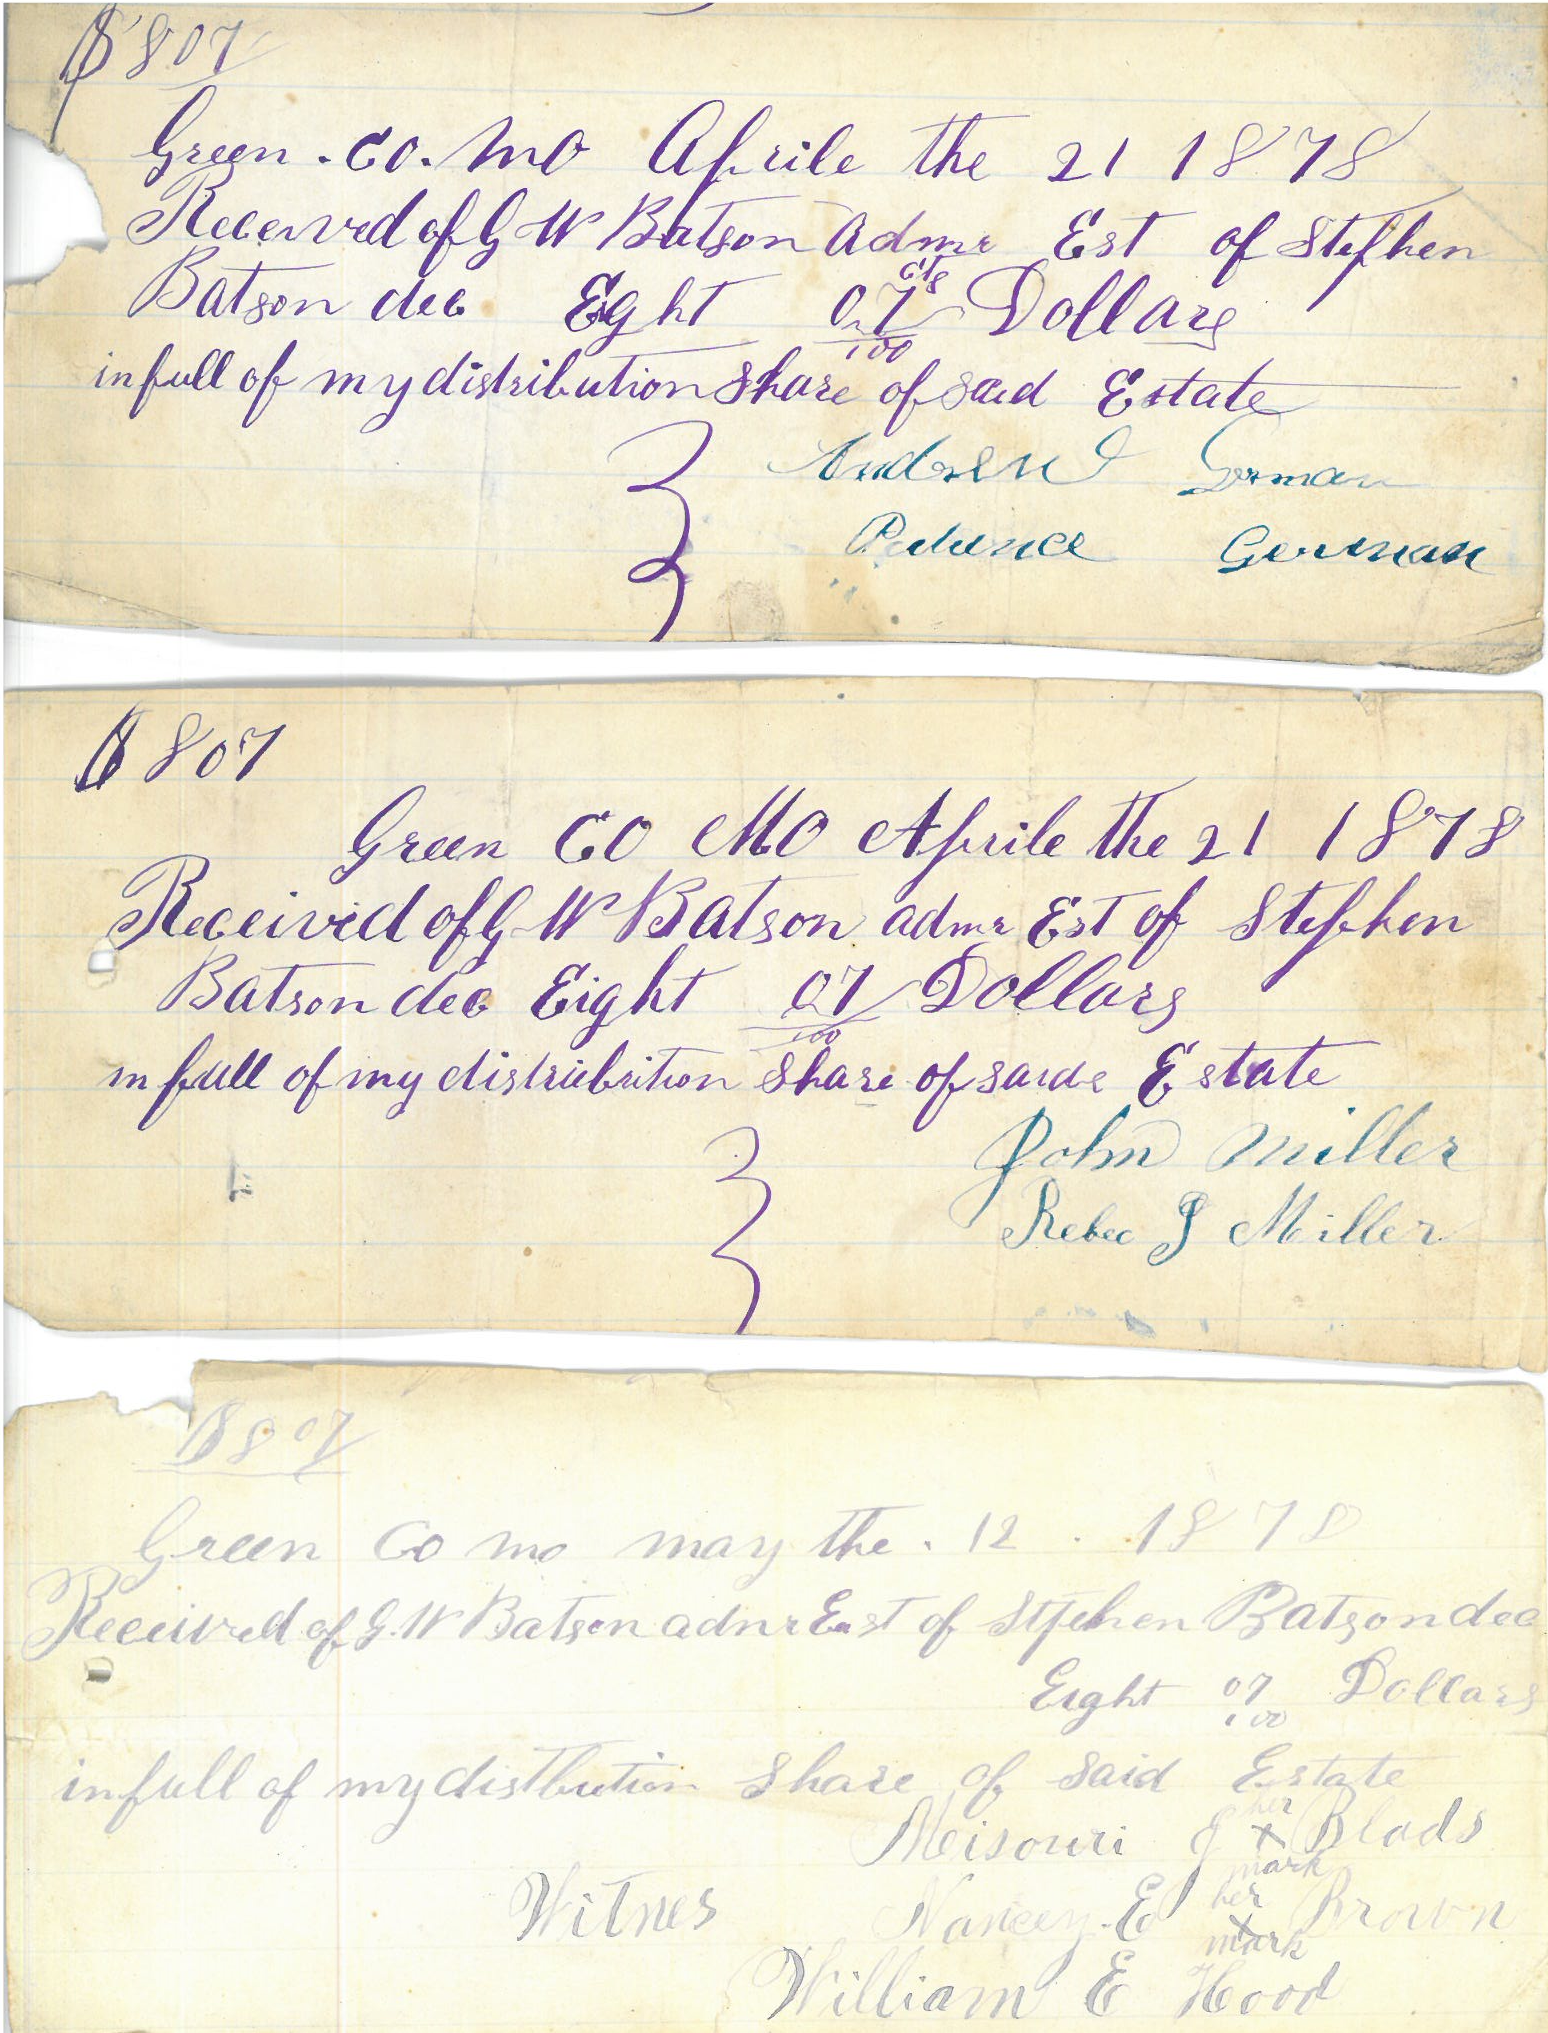 $807
Green . Co. Mo Aprile the 21 1878
Received of G W Batson Admr Est of Stephen
cts
Batson dec Eght 07/100 Dollars
in full of my distribution Share of said Estate
Andrew J Gorman
German
$807
Green CO MO Aprile the 21 1878
Received of G W Batson admr Est of Stephen
Batson dec Eight 07/100 Dollars
in full of my distribution Share of saide Estate
John Miller
Rebec J Miller
$807
Green Co mo may the . 12 . 1878
Received of G. W Batson admr Est of Stephen Batson dec
Eight 07/100 Dollars
in full of my distbution Share of Said Estate
her
Meisouri J X Blads
mark
her
Witnes Nancey. E X Brown
mark
William E Hood